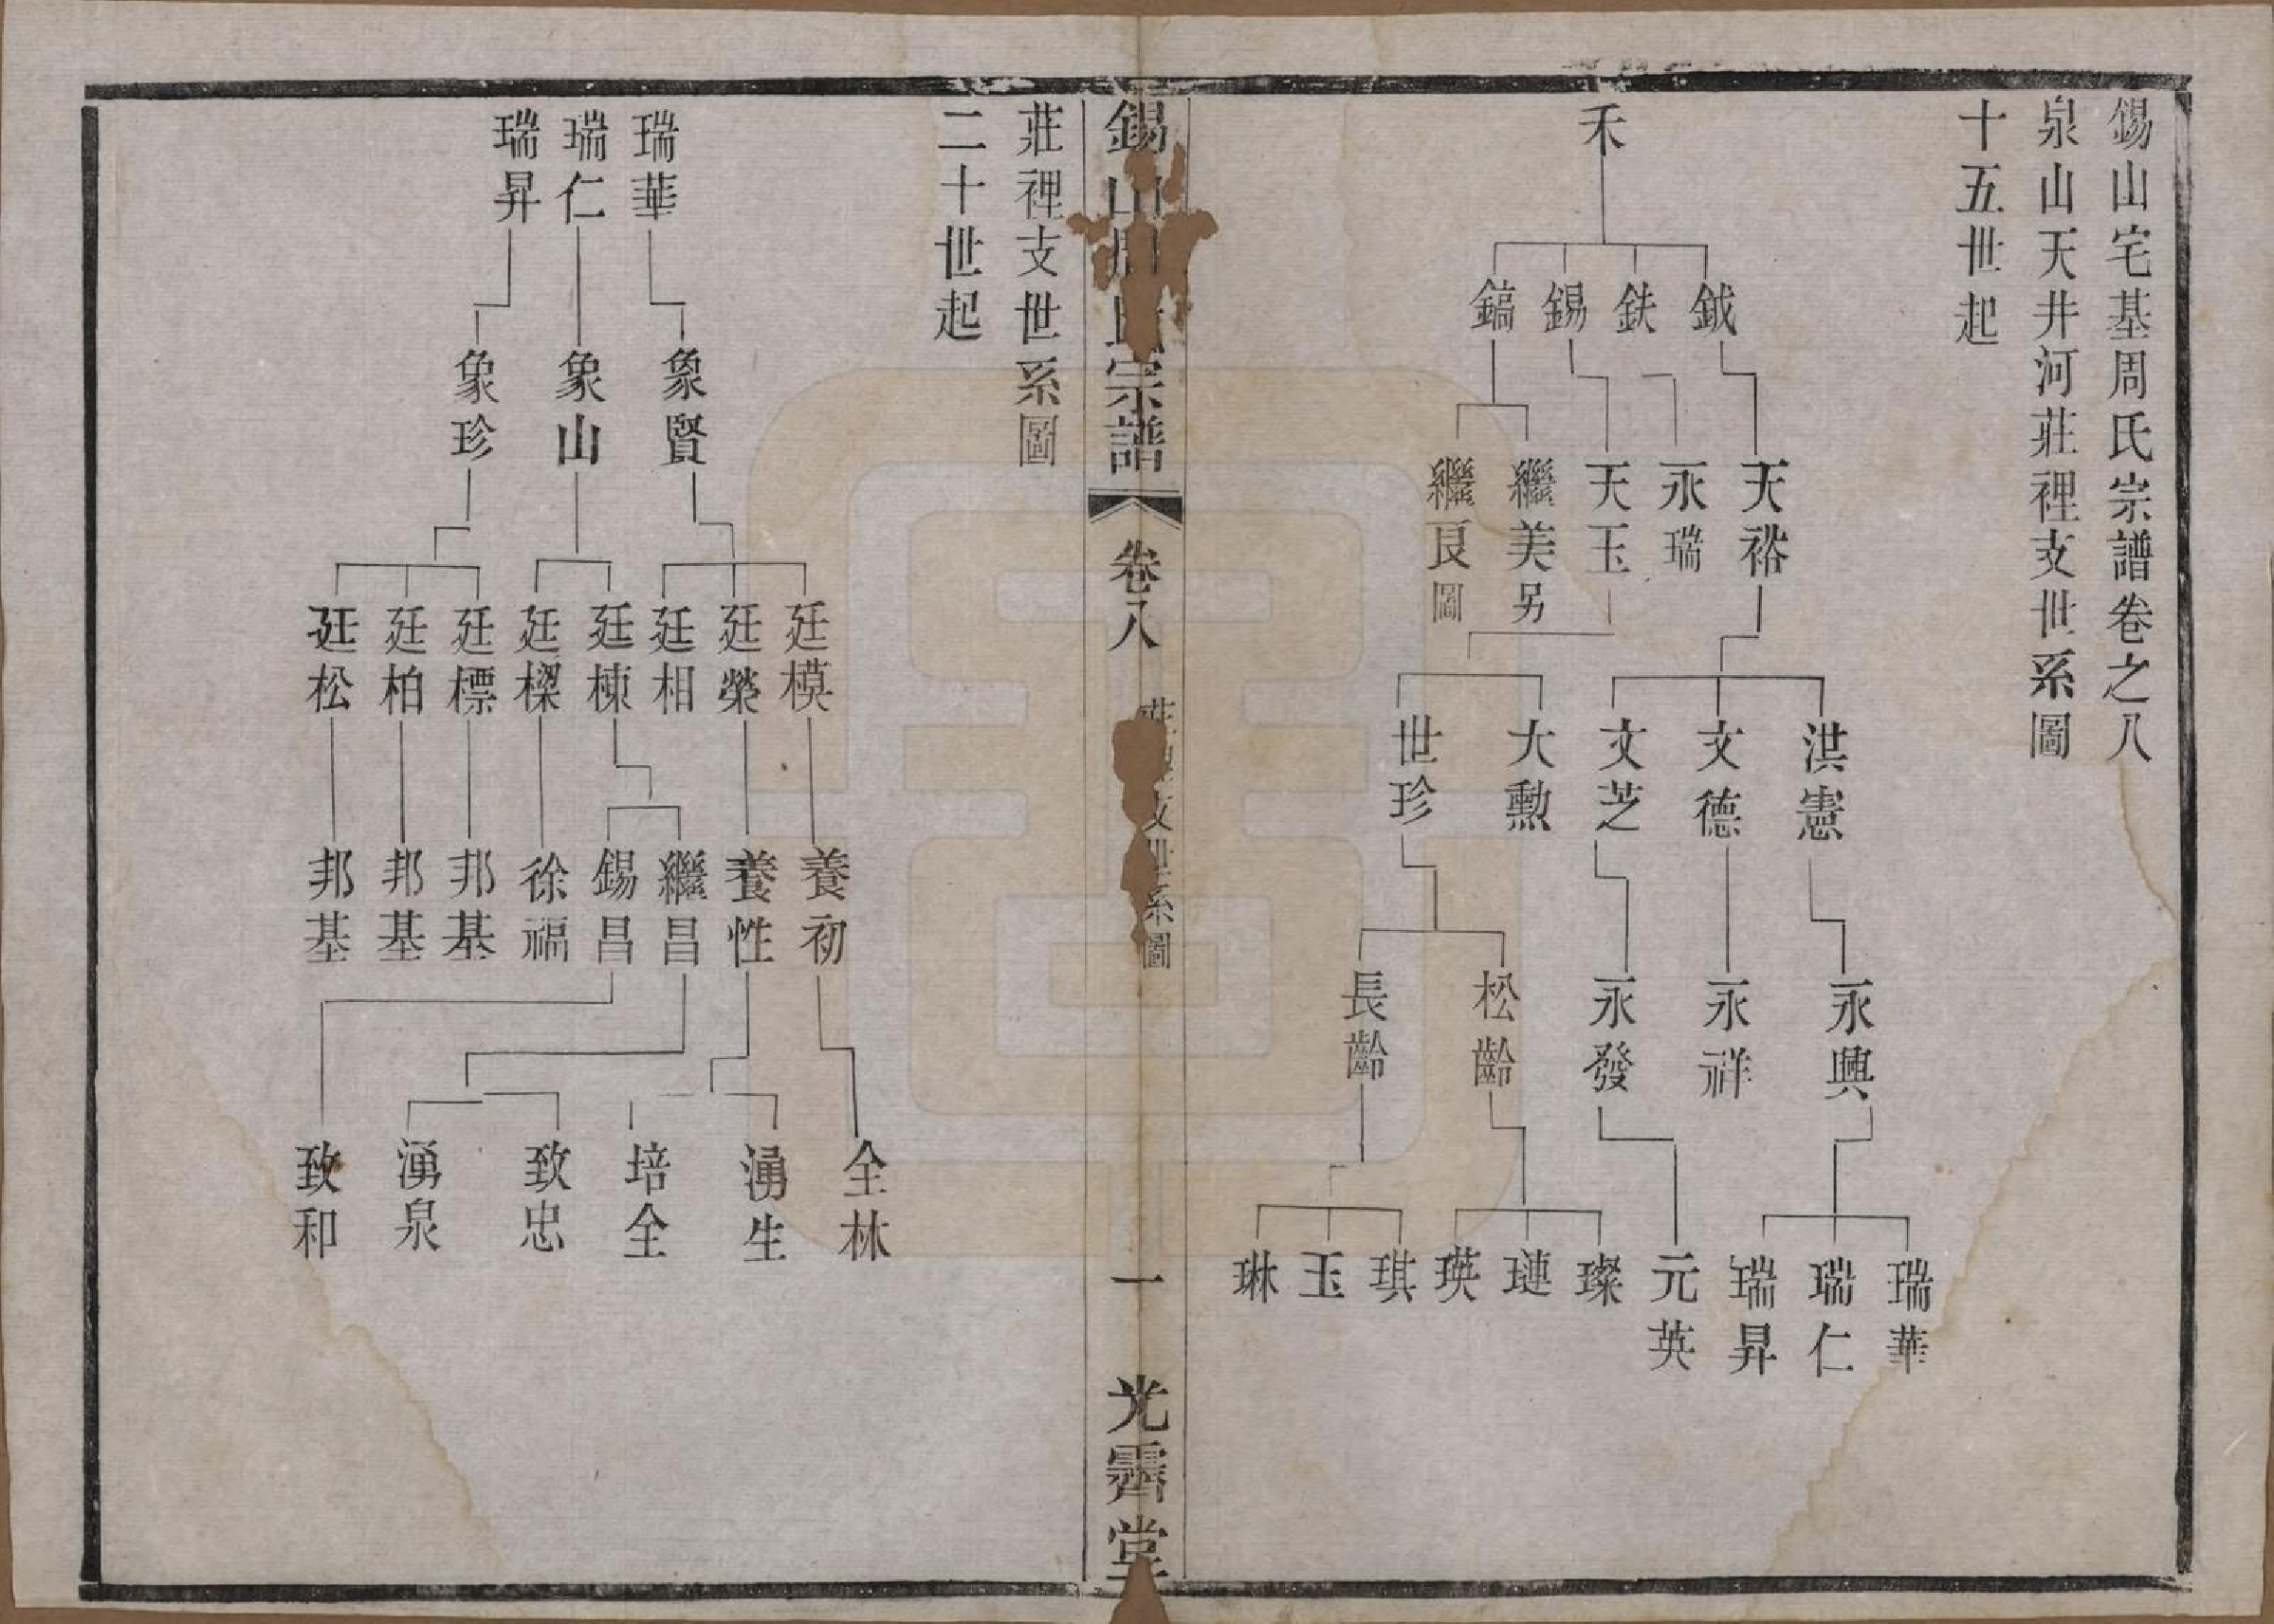 錫山宅基周氏宗譜卷之八
泉山天井河莊裡支世系圖
十五世起
禾
鉞
鉄
錫
鎬
天裕
永瑞
天玉
繼美另
繼良圖
洪憲
文德
文芝
大勲
世珍
永興
永祥
永發
松齡
長齡
瑞華
瑞仁
瑞昇
元英
璨
璉
瑛
琪
玉
琳
錫山周氏宗譜
卷八
莊裡支世系圖
一
光霽堂
莊裡支世系圖
二十世起
瑞華
瑞仁
瑞昇
象賢
象山
象珍
廷模
廷榮
廷相
廷棟
廷樑
廷標
廷柏
廷松
養初
養性
繼昌
錫昌
徐福
邦基
邦基
邦基
全林
湧生
培全
致忠
湧泉
致和